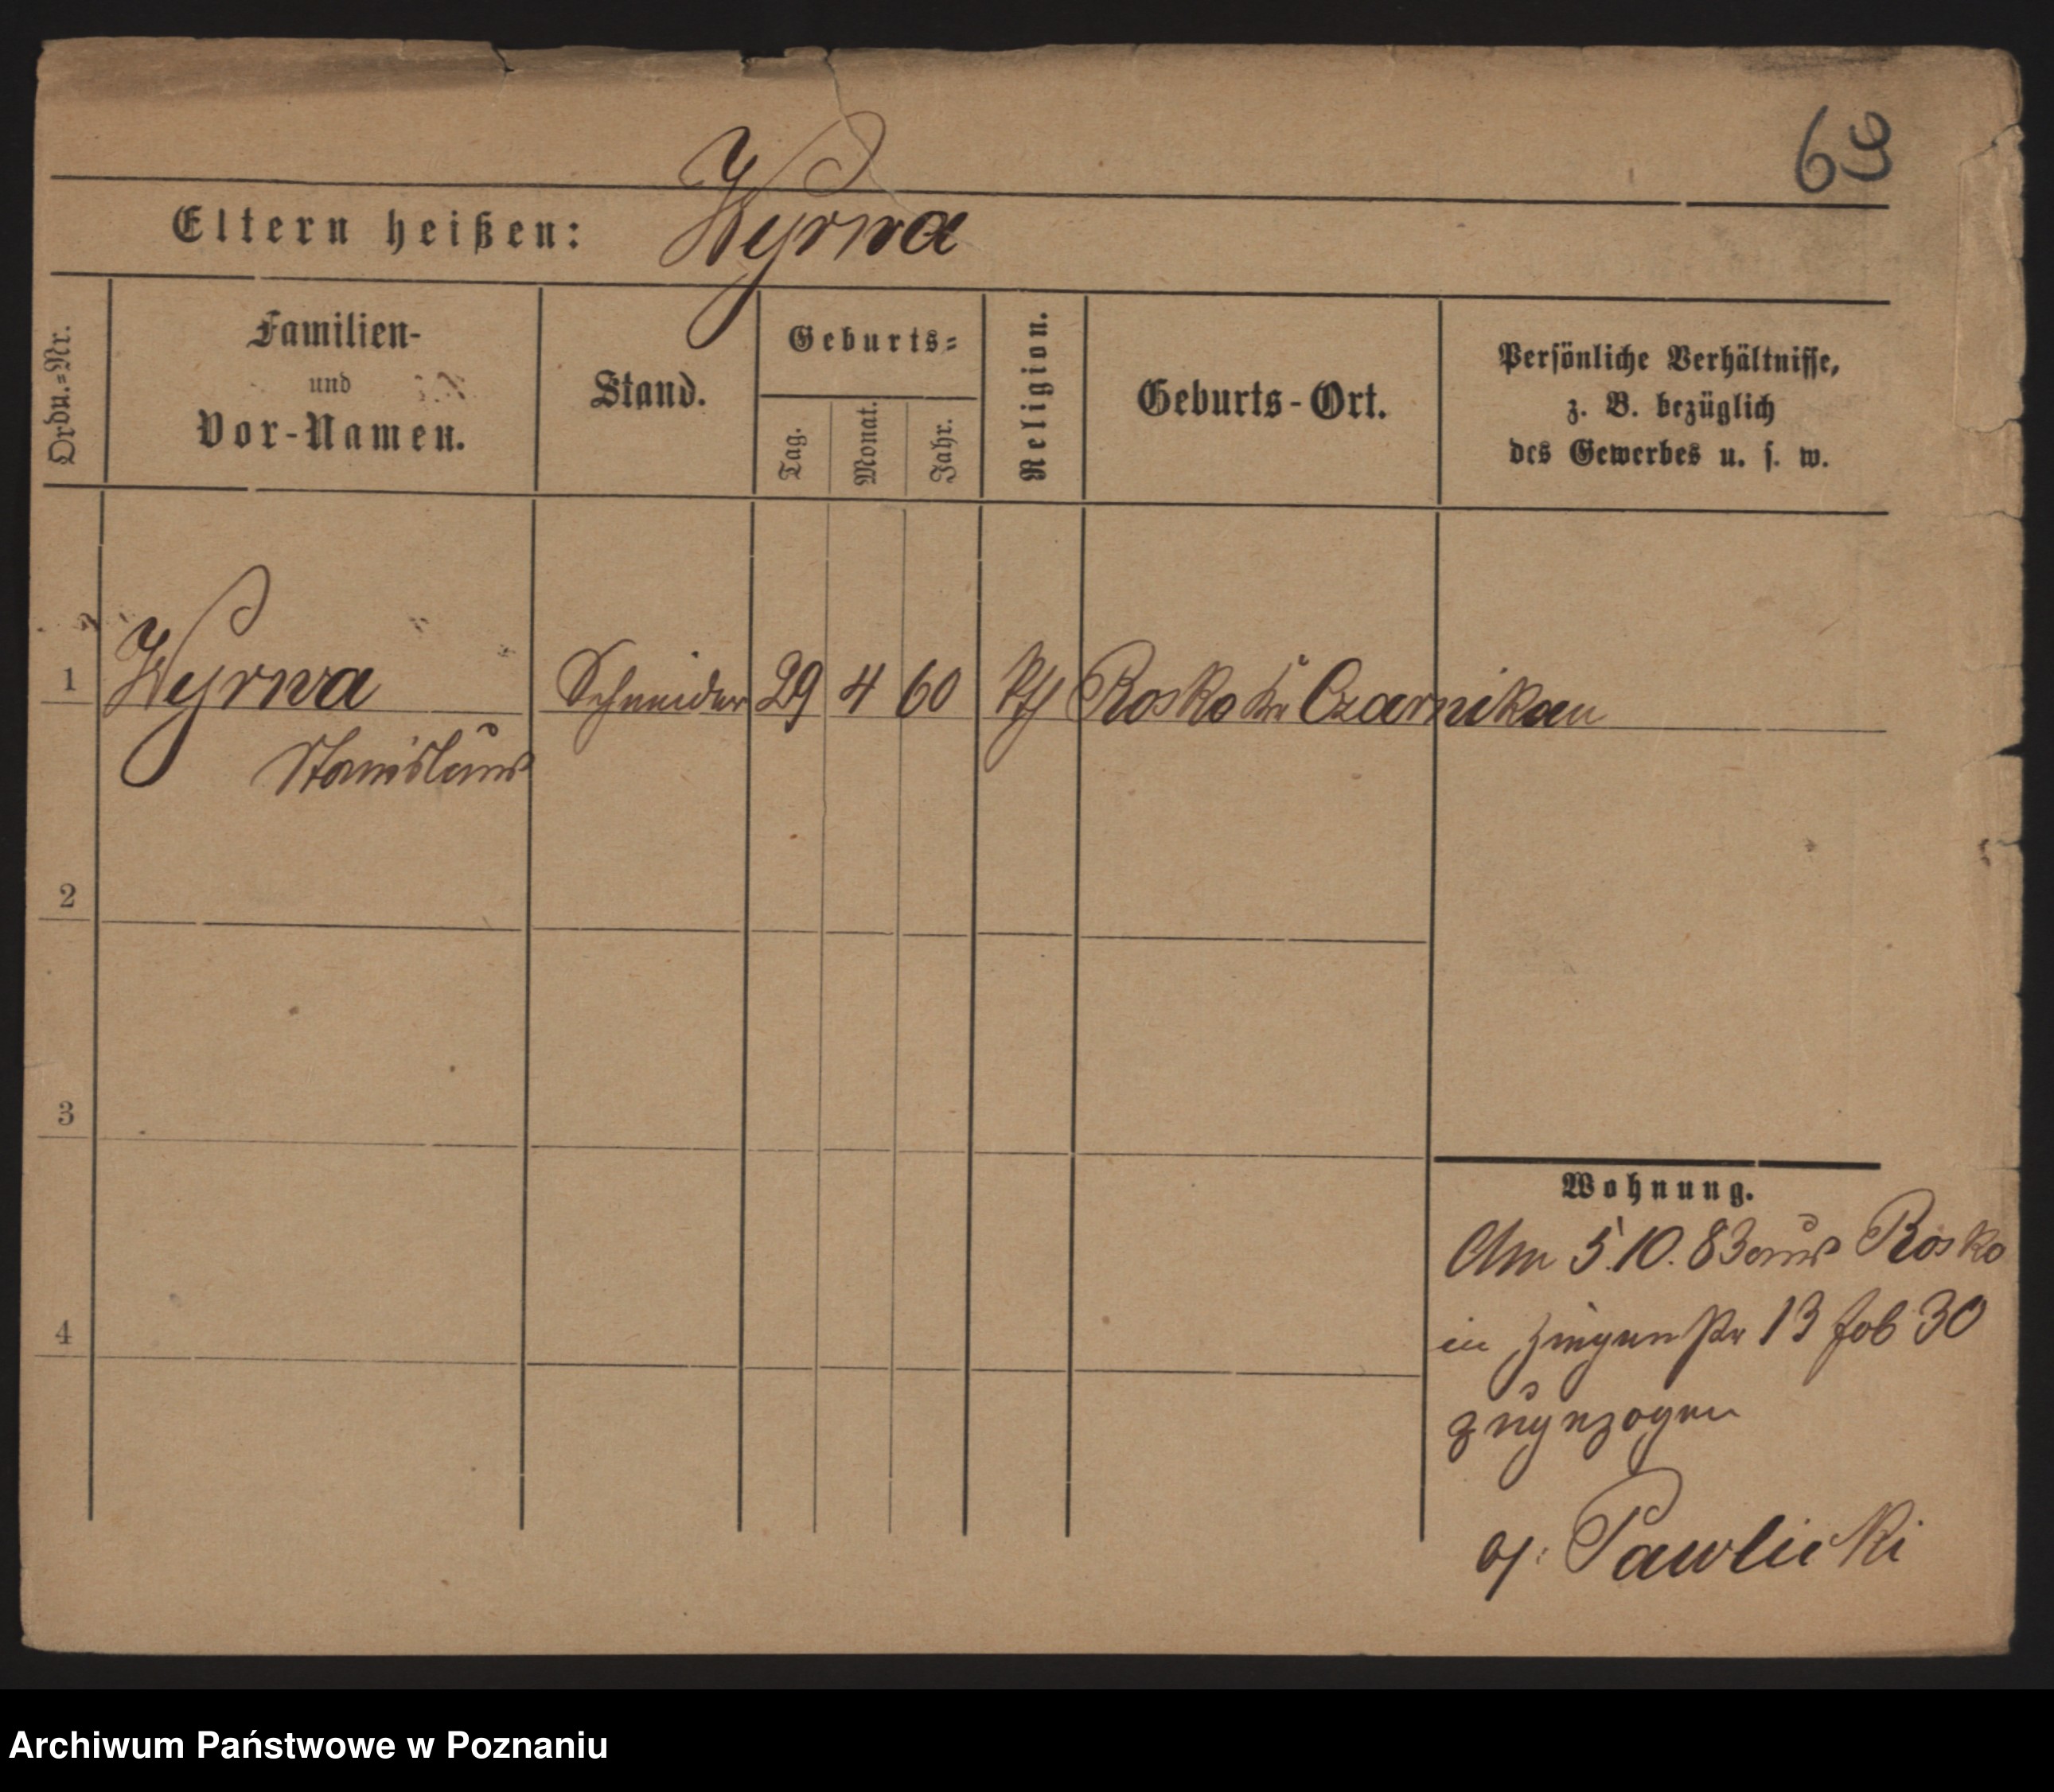 69
Eltern heißen: Wyrwa
Ordn.=Nr.
Familien-
und
Vor-Namen.
Stand.
Geburts=
Tag.
Monat.
Jahr.
Religion.
Geburts-Ort.
Persönliche Verhältnisse,
z. B. bezüglich
des Gewerbes u. s. w.
1 Wyrwa Schneider 29 4 60 Rosko Kr Czarnikau
Stanislaus
2
3
4
Wohnung.
Am 5.10.83 aus Rosko
in 13 30
zugezogen
Pawlicki
Archiwum Państwowe w Poznaniu